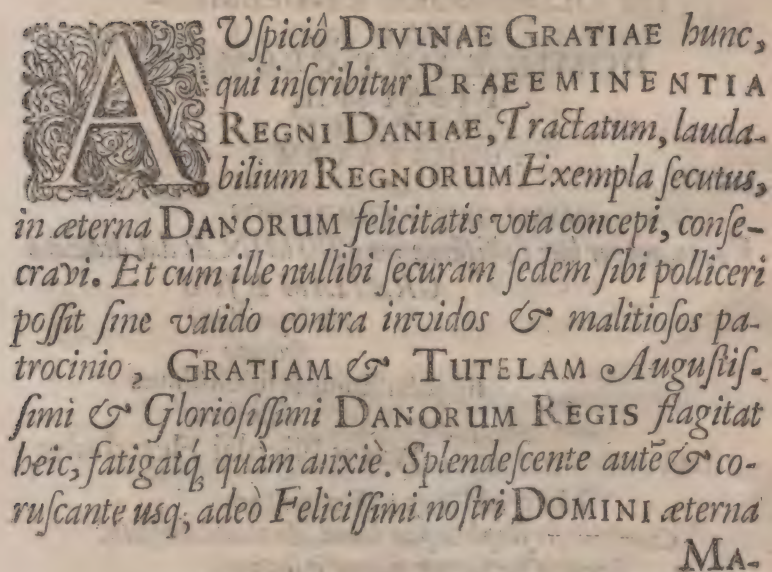 AUſpiciô DIVINAE GRATIAE hunc,
qui inſcribitur PRAEEMINENTIA
REGNI DANIAE, Tractatum, lauda-
bilium REGNORUM Exempla ſecutus,
in æterna DANORUM felicitatis vota concepi, conſe-
cravi. Et cùm ille nullibi ſecuram ſedem ſibi polliceri
poſſit ſine valido contra invidos & malitioſos pa-
trocinio, GRATIAM & TUTELAM Auguſtiſ-
ſimi & Glorioſiſſimi DANORUM REGIS flagitat
heic, fatigatq́; quàm anxiè. Splendeſcente autē & co-
ruſcante usq; adeò Feliciſſimi noſtri DOMINI æterna
MA-